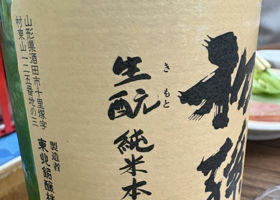 初孫
きもと
生酛 純米本
山形県酒田市十里塚字
村東山一二五番地の三
製造者
東北銘醸株